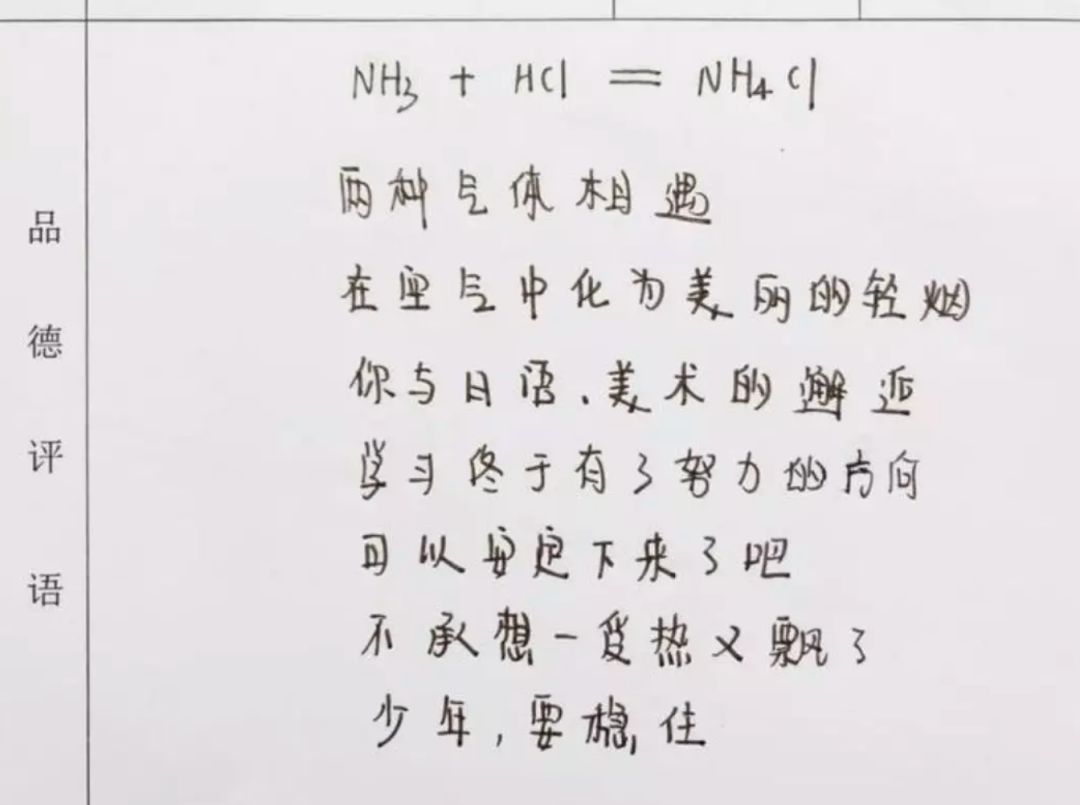 NH₃ + HCl = NH₄Cl
两种气体相遇
在空气中化为美丽的轻烟
你与日语、美术的邂逅
学习终于有了努力的方向
可以安定下来了吧
不承想一受热又飘了
少年,要稳住
品德评语